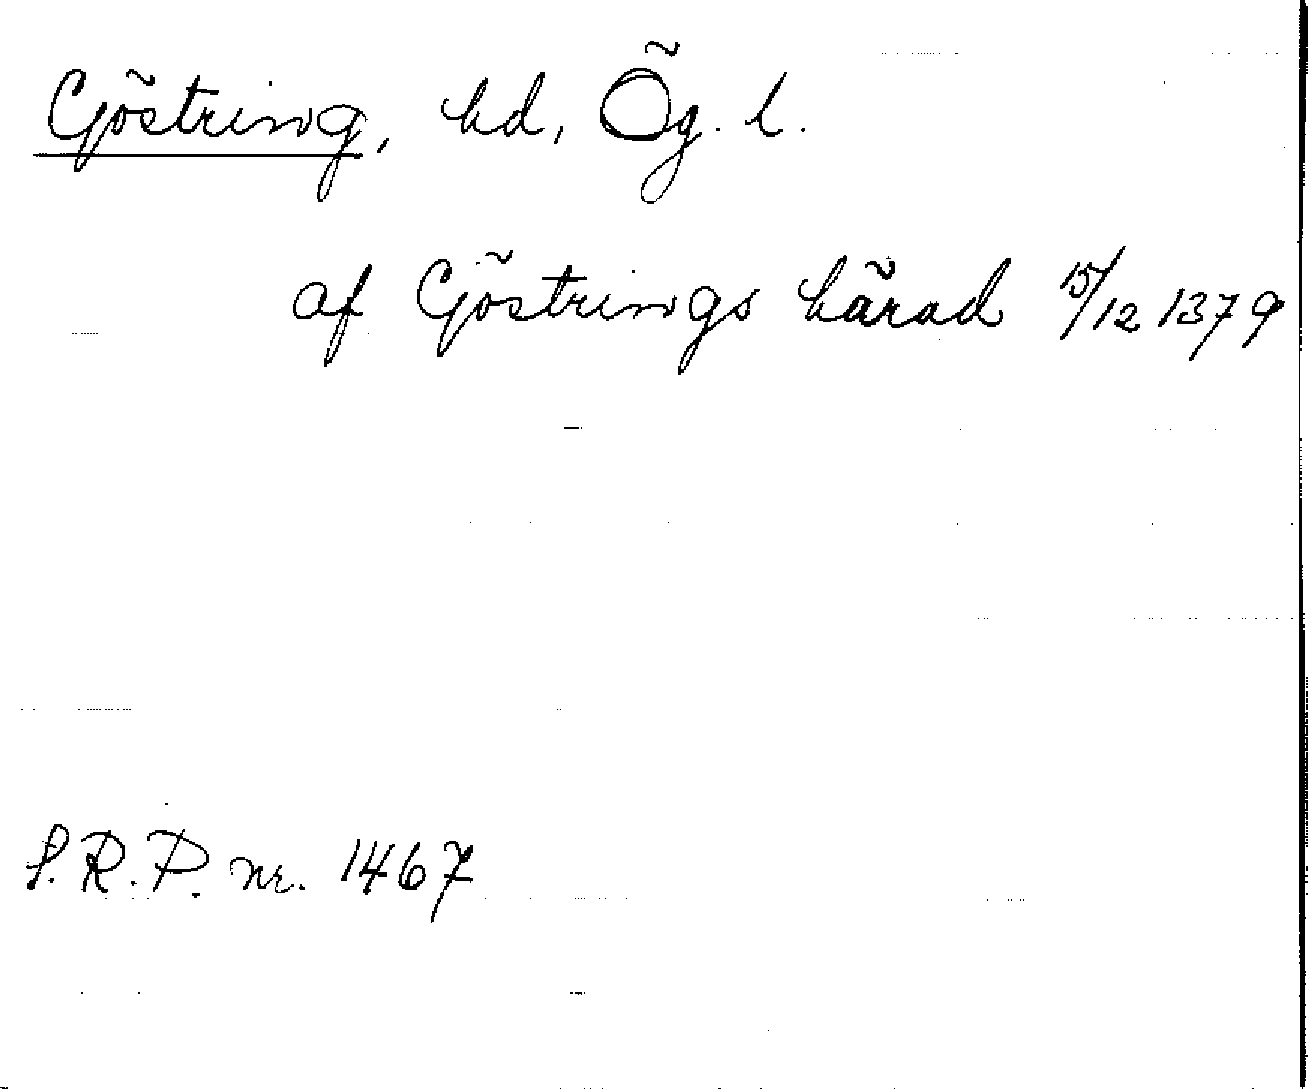 Göstring, hd, Ög. l.
af Göstrings härad 15/12 1379
S.R.P. nr. 1467